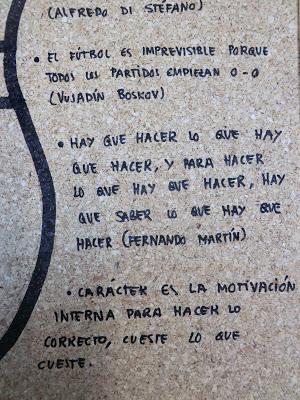 (ALFREDO DI STÉFANO)
• EL FÚTBOL ES IMPREVISIBLE PORQUE
TODOS LOS PARTIDOS EMPIEZAN 0-0
(VUJADÍN BOSKOV)
• HAY QUE HACER LO QUE HAY
QUE HACER, Y PARA HACER
LO QUE HAY QUE HACER, HAY
QUE SABER LO QUE HAY QUE
HACER (FERNANDO MARTÍN)
• CARÁCTER ES LA MOTIVACIÓN
INTERNA PARA HACER LO
CORRECTO, CUESTE LO QUE
CUESTE.